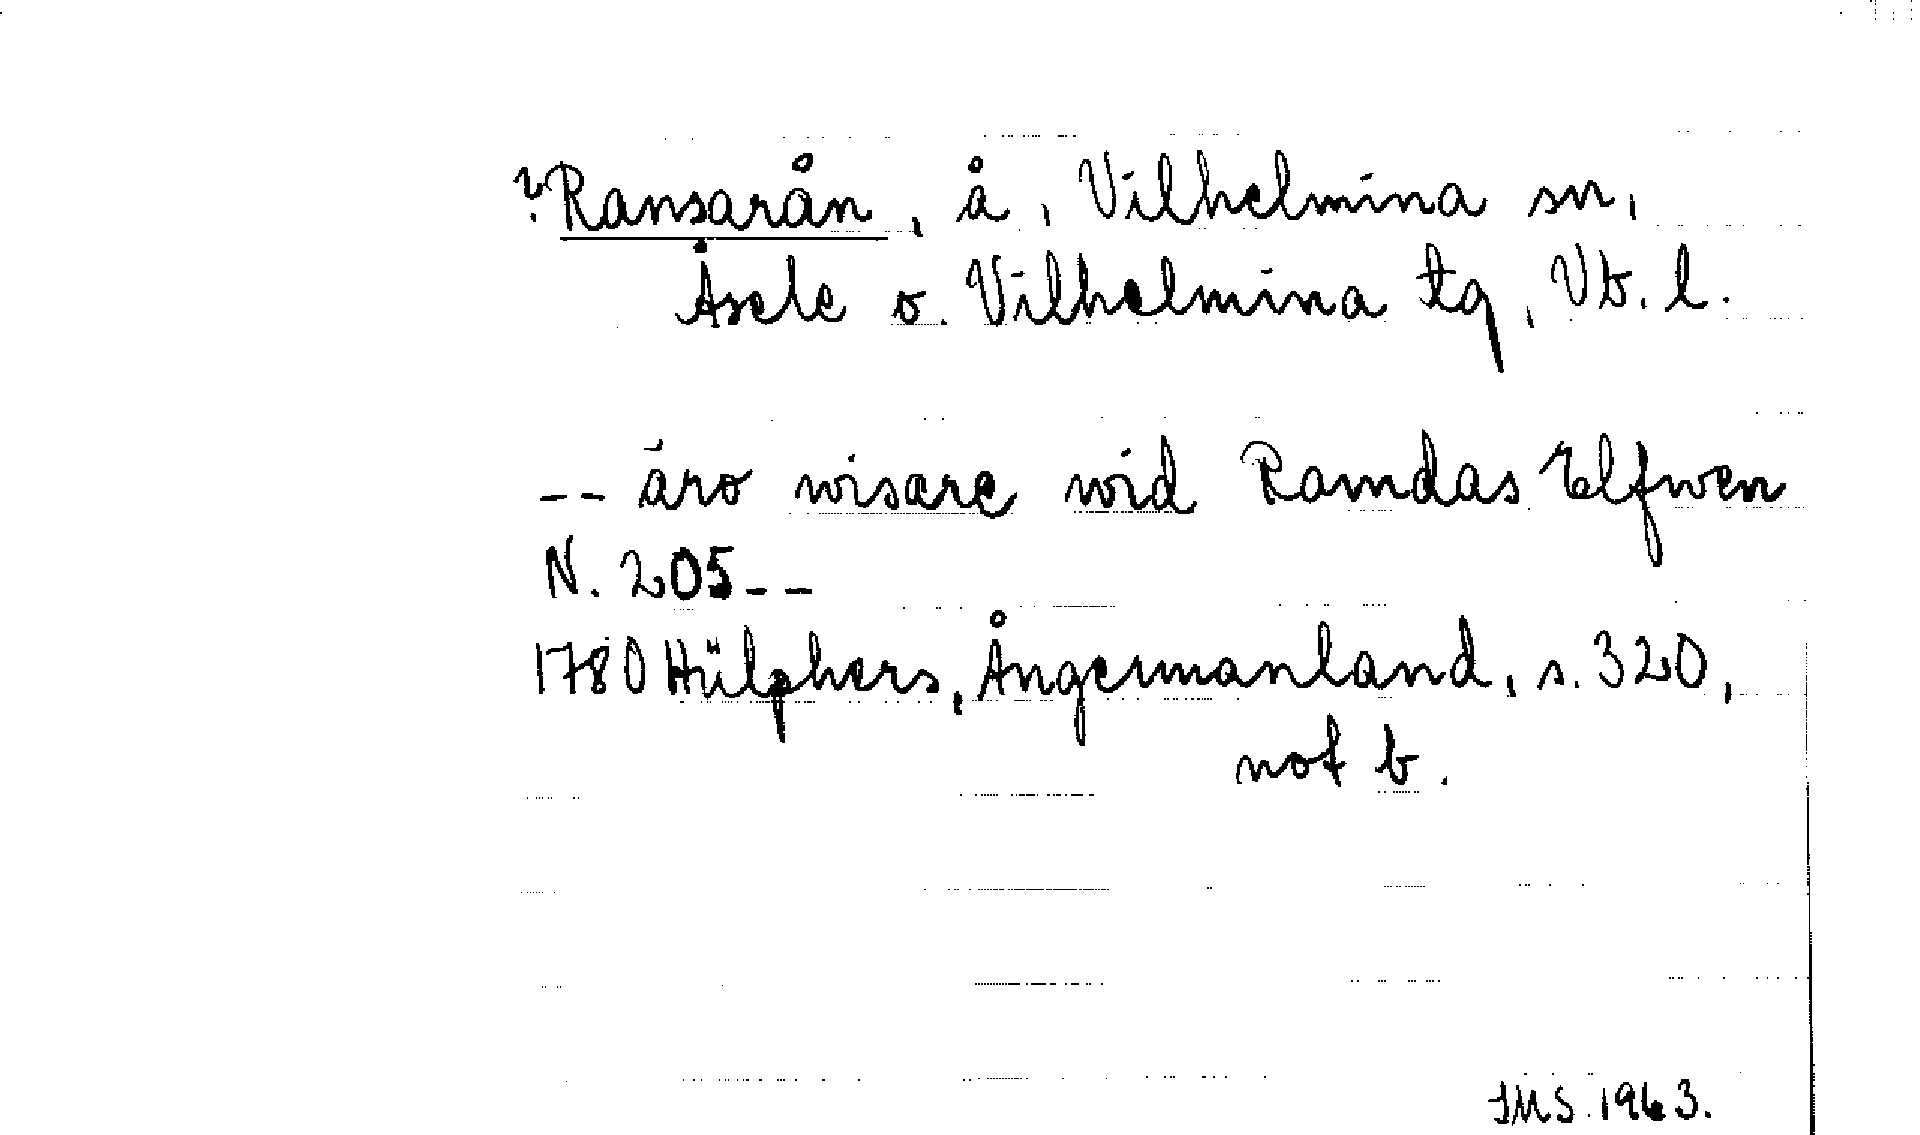 ?Ransarån, å, Vilhelmina sn,
Åsele o. Vilhelmina tg, Vb. l.
-- äro wisare wid Ramdas Elfwen
N. 205--
1780 Hülphers, Ångermanland, s. 320,
not b.
IMS 1963.